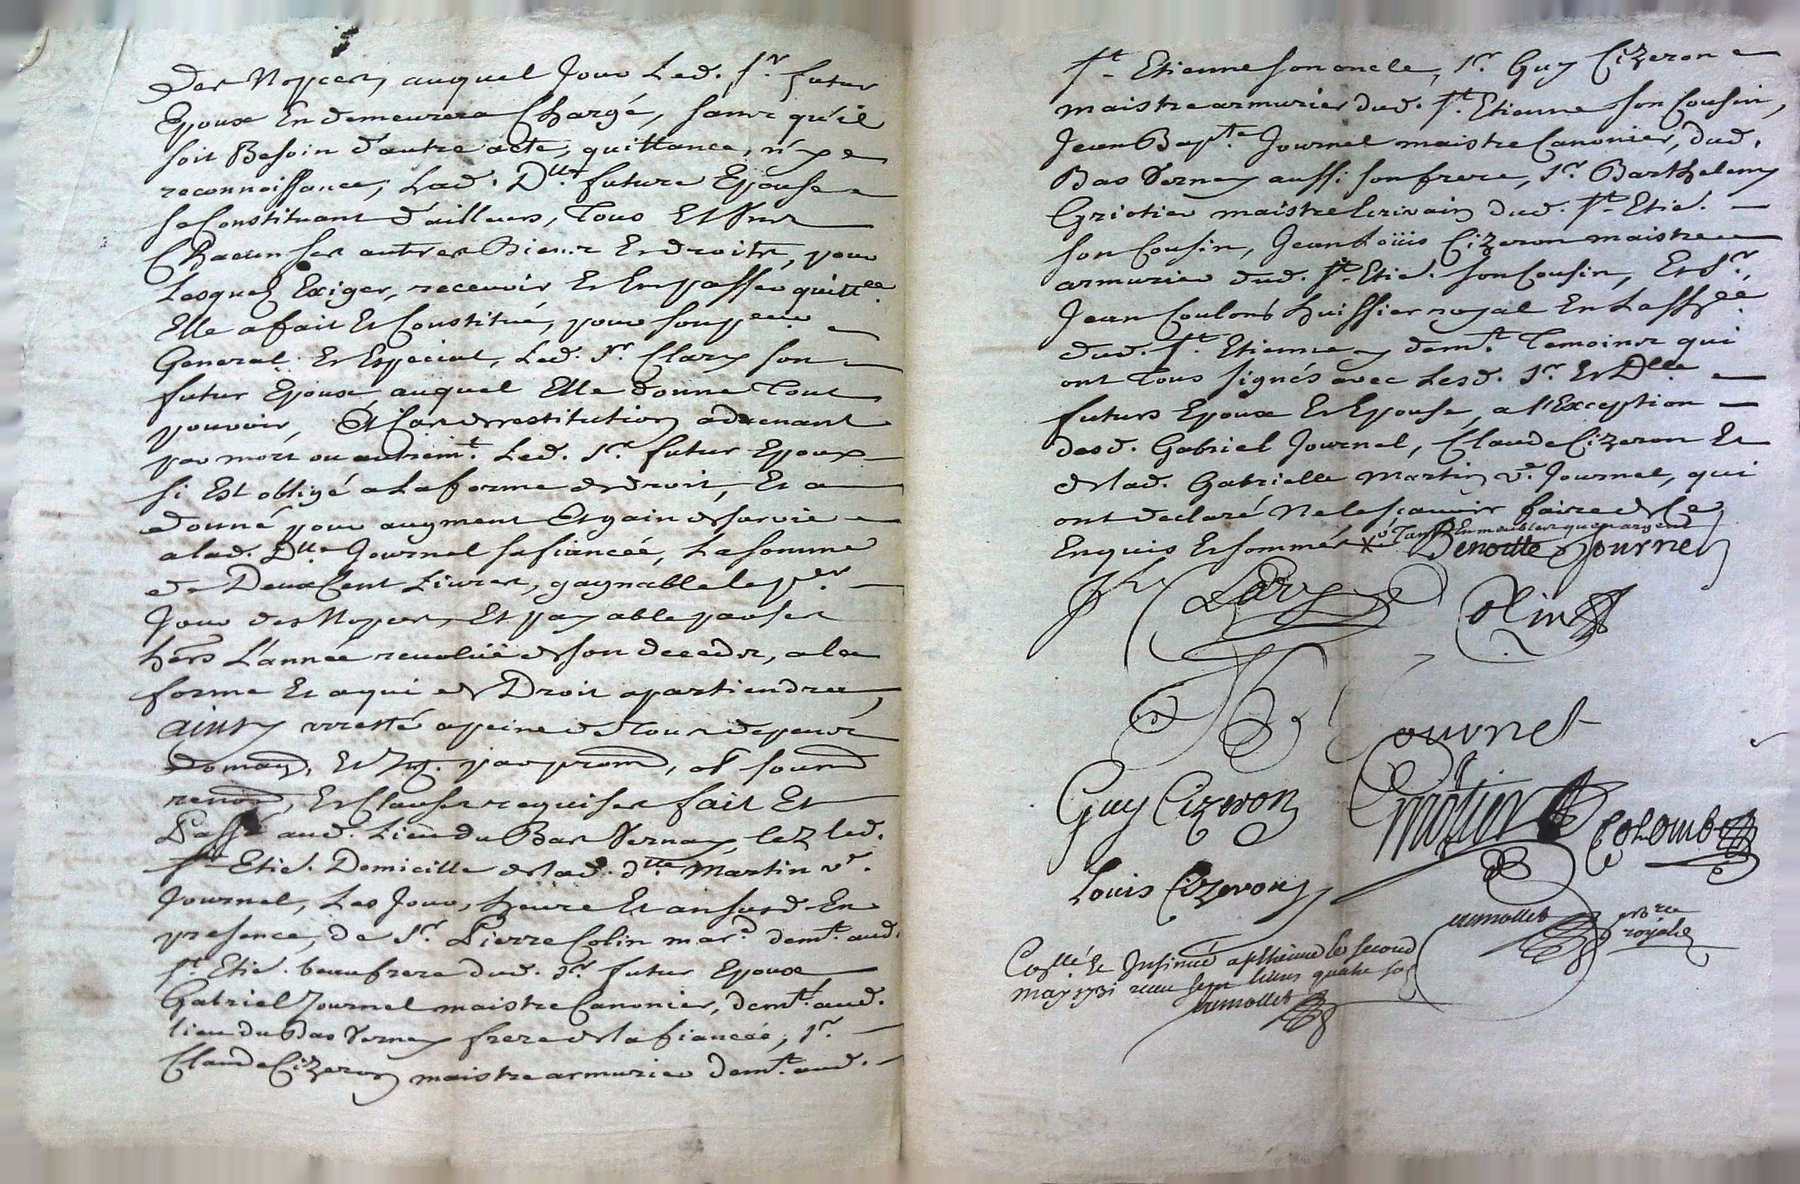 Des Nopces, auquel Jour Led. Sr. futur
Epoux En demeurera Chargé, sans qu'il
soit Besoin d'autre acte, quittance, n'y
reconnoissance, Lad. Dlle. future Epouse
se Constituant d'ailleurs, Tous Et Uns
Chacun ses autres Biens Et droits, pour
Lesquels Exiger, recevoir Et En passer quittce.
Elle a fait Et Constitué, pour son preur
General Et Especial, Led. Sr. Clary son
futur Epoux, auquel Elle donne Tout
pouvoir, Et Cas de restitution advenant
par mort ou autremt. Led. Sr. futur Epoux
si Est obligé a La forme de droit, Et a
donné pour augment Et gain de survie
a lad. Dlle Journel sa fiancée, La somme
de Deux Cent Livres, gagnable le per.
Jour des Nopces, Et payable par ses
hers L'année revolüe de son decedz, a la
forme Et a qui de Droit apartiendra,
ainsy arresté a peine de Tous depens
domag. Et Jnt. par prom, ob. soum
renon, Et Clauses requises fait Et
Passé aud. Lieu du Bas Vernay, lez led.
St. Etie. Domicille de lad. dlle Martin ve.
Journel, Les Jour, heure Et an susd. En
presence, de Sr. Pierre Colin mard. demt. aud.
St. Etie. beaufrere dud. Sr. futur Epoux
Gabriel Journel maistre Canonier, demt. aud.
lieu du Bas Vernay frere de la fiancée, Sr.
Claude Cizeron maistre armurier demt. aud.
St. Etienne son oncle, Sr. Guy Cizeron
maistre armurier dud. St. Etienne son Cousin,
Jean Bapte. Journel maistre Canonier, dud.
Bas Vernay aussi son frere, Sr. Barthelemy
Griotier maistre Ecrivain dud. St. Etie.
son Cousin, Jean Loüis Cizeron maistre
armurier dud. St. Etie. son Cousin, Et Sr.
Jean Coulons huissier royal En
dud. St. Etienne y demt. Temoins qui
ont Tous signés avec Lesd. Sr. Et Dlle
futurs Epoux Et Epouse, a l'Exception
desd. Gabriel Journel, Claude Cizeron Et
de lad. Gabrielle Martin ve. Journel, qui
ont declaré Ne le sçavoir faire de Ce
Enquis Et sommés x Tant En meubles qu'en argent
Benoitte Journel
Clary Colin
Journel
Guy Cizeron Griotier Colombe
Louis Cizeron
nore royale
Collé. Et Insinué a st Etienne le second
may 1731 receu sept livres quatre sols